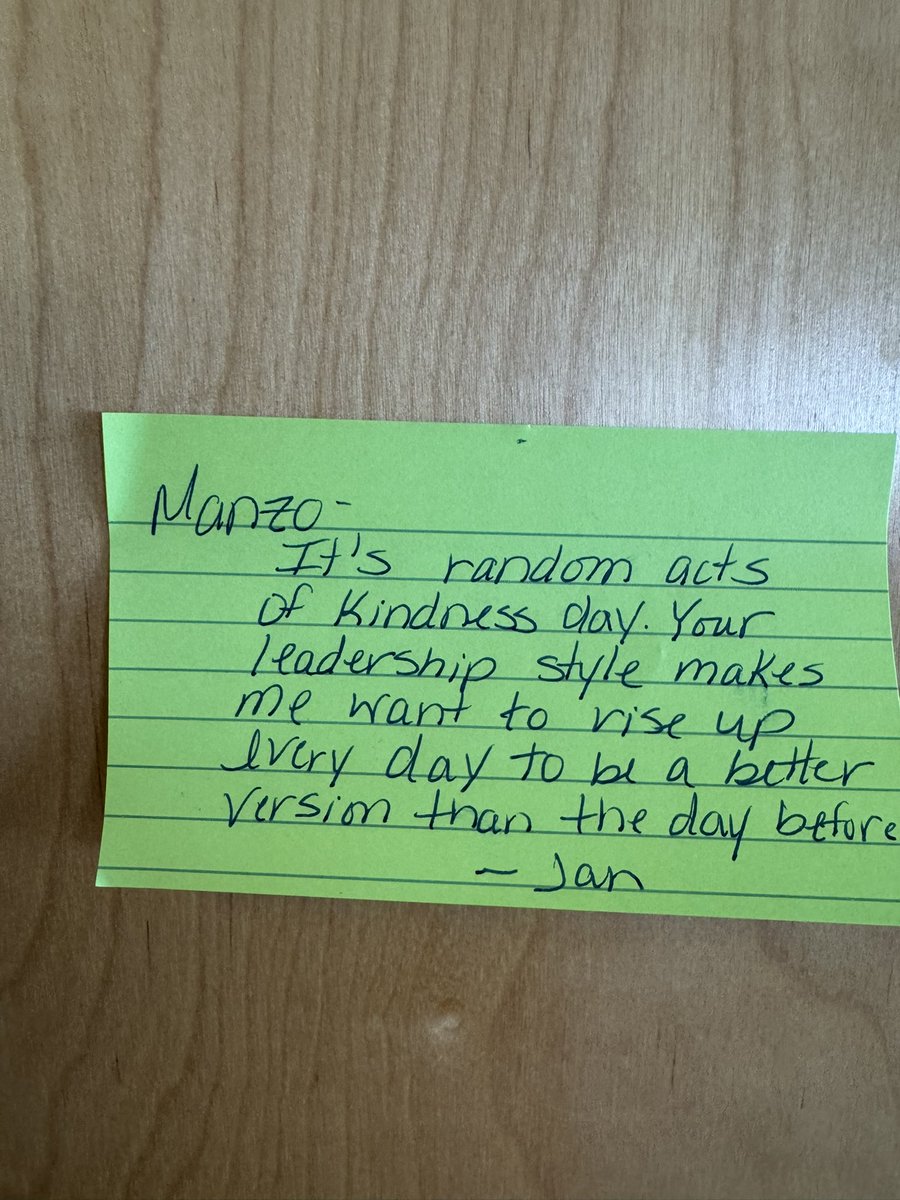 Manzo-
It's random acts
of kindness day. Your
leadership style makes
me want to rise up
every day to be a better
version than the day before
- Jan